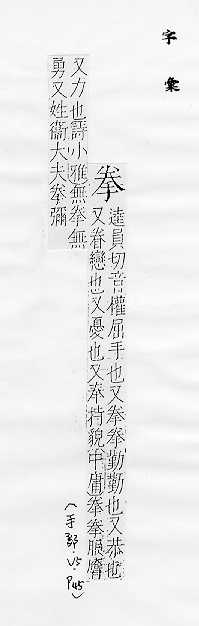 字彙
拳
逵員切音權屈手也又拳拳勤勤也又恭也
又眷戀也又憂也又奉持貌中庸拳拳服膺
又力也詩小雅無拳無
勇又姓衞大夫拳彌
(手部.V5.P45)